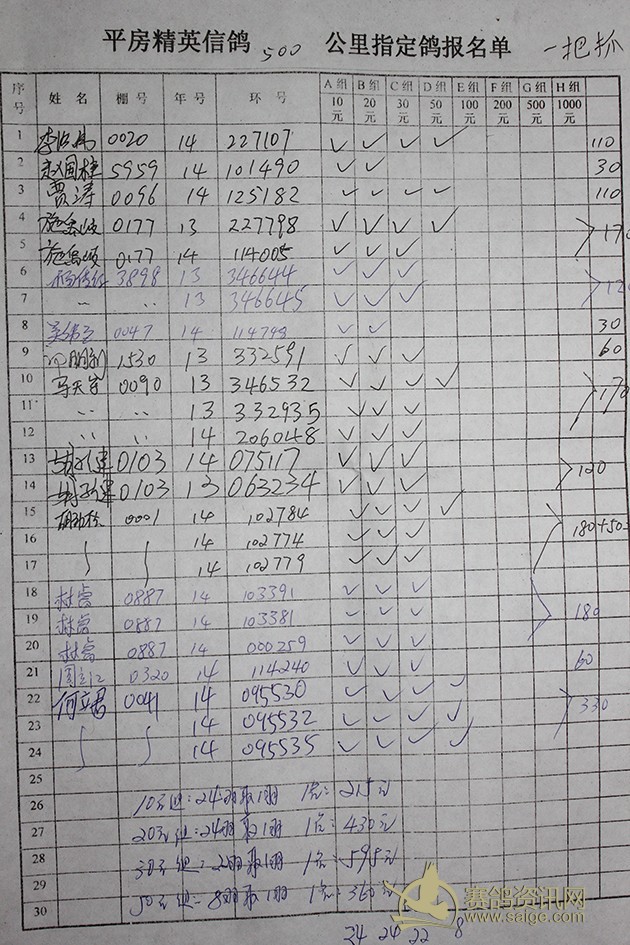 平房精英信鸽 500 公里指定鸽报名单 一把抓
序号 姓名 棚号 年号 环号 A组 10元 B组 20元 C组 30元 D组 50元 E组 100元 F组 200元 G组 500元 H组 1000元
1 0020 14 227107 ✓ ✓ ✓ ✓ 110
2 赵国柱 5959 14 101490 ✓ ✓ 30
3 贾涛 0096 14 125182 ✓ ✓ ✓ ✓ 110
4 0177 13 227798 ✓ ✓ ✓ ✓
5 0177 14 114005 ✓ ✓ ✓
6 3898 13 346644 ✓ ✓ ✓
7 〃 〃 13 346645 ✓ ✓ ✓
8 0047 14 114798 ✓ ✓ 30
9 1530 13 332591 ✓ ✓ ✓ 60
10 0090 13 346532 ✓ ✓ ✓ ✓ 170
11 〃 〃 13 332935 ✓ ✓ ✓
12 〃 〃 14 206048 ✓ ✓ ✓
13 0103 14 075117 ✓ ✓ ✓ 120
14 0103 13 063234 ✓ ✓ ✓
15 0001 14 102784 ✓ ✓ ✓ ✓
16 14 102774 ✓ ✓ ✓ 180+50
17 14 102779 ✓ ✓ ✓
18 0887 14 103391 ✓ ✓ ✓
19 0887 14 103381 ✓ ✓ ✓ 180
20 0887 14 000259 ✓ ✓ ✓
21 0320 14 114240 ✓ ✓ ✓ 60
22 何立君 0041 14 095530 ✓ ✓ ✓ ✓ 330
23 14 095532 ✓ ✓ ✓ ✓
24 14 095535 ✓ ✓ ✓ ✓
25
26 10元组:24羽取1羽 1名:215元
27 20元组:24羽取1羽 1名:430元
28 30元组:22羽取1羽 1名:595元
29 50元组:8羽取1羽 1名:360元
30
24 24 22 8
赛鸽资讯网
www.saige.com